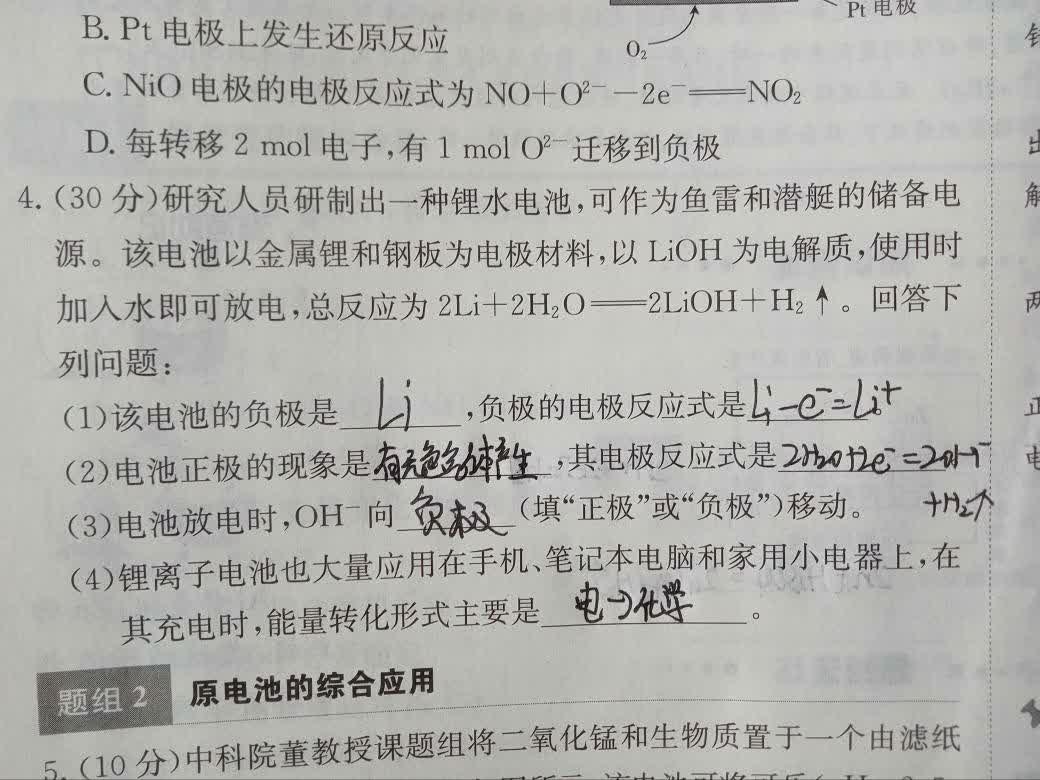 Pt 电极
B. Pt 电极上发生还原反应
O₂
C. NiO 电极的电极反应式为 NO+O²⁻－2e⁻══NO₂
D. 每转移 2 mol 电子,有 1 mol O²⁻ 迁移到负极
4. (30 分)研究人员研制出一种锂水电池,可作为鱼雷和潜艇的储备电
源。该电池以金属锂和钢板为电极材料,以 LiOH 为电解质,使用时
加入水即可放电,总反应为 2Li+2H₂O══2LiOH+H₂↑。回答下
列问题:
(1)该电池的负极是 Li ,负极的电极反应式是 Li-e⁻=Li⁺
(2)电池正极的现象是 有无色气体产生 ,其电极反应式是 2H₂O+2e⁻=2OH⁻
+H₂↑
(3)电池放电时,OH⁻向 负极 (填“正极”或“负极”)移动。
(4)锂离子电池也大量应用在手机、笔记本电脑和家用小电器上,在
其充电时,能量转化形式主要是 电→化学 。
题组 2 原电池的综合应用
5. (10 分)中科院董教授课题组将二氧化锰和生物质置于一个由滤纸